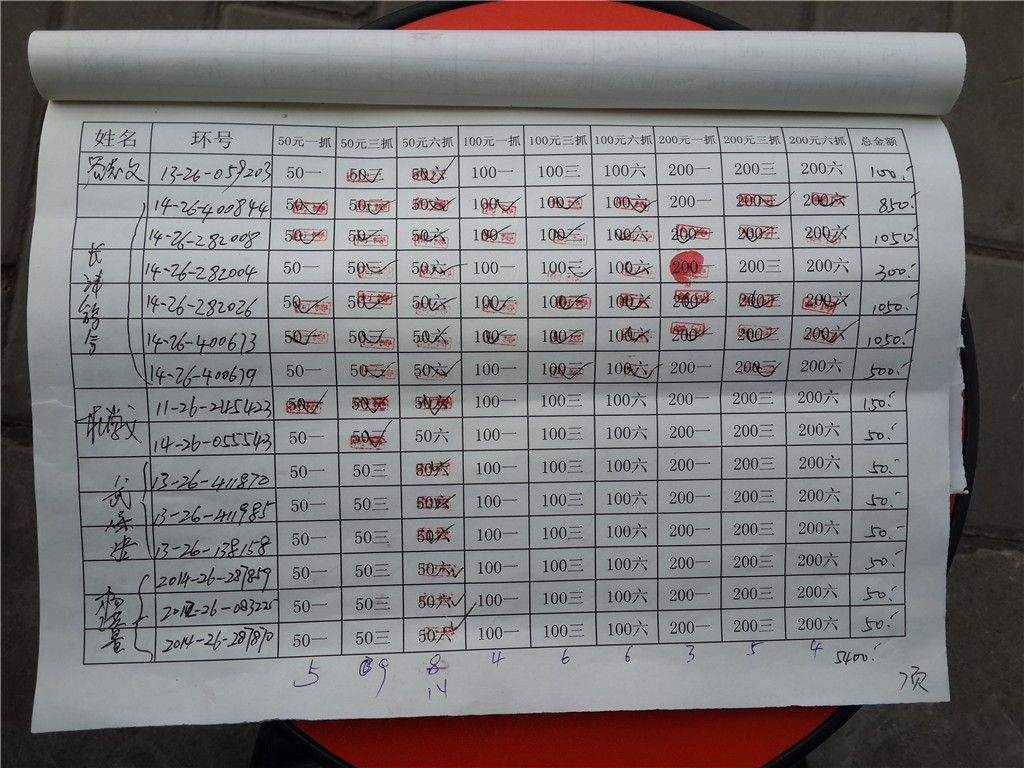 姓名 环号 50元一抓 50元三抓 50元六抓 100元一抓 100元三抓 100元六抓 200元一抓 200元三抓 200元六抓 总金额
13-26-059203 50一 50三 50六 100一 100三 100六 200一 200三 200六 100.-
14-26-400844 50一 50三 50六 100一 100三 100六 200一 200三 200六 850.-
14-26-282008 50一 50三 50六 100一 100三 100六 200一 200三 200六 1050.-
长 14-26-282004 50一 50三 50六 100一 100三 100六 200一 200三 200六 300.-
14-26-282026 50一 50三 50六 100一 100三 100六 200一 200三 200六 1050.-
14-26-400673 50一 50三 50六 100一 100三 100六 200一 200三 200六 1050.-
14-26-400679 50一 50三 50六 100一 100三 100六 200一 200三 200六 500.-
11-26-245423 50一 50三 50六 100一 100三 100六 200一 200三 200六 150.-
14-26-055543 50一 50三 50六 100一 100三 100六 200一 200三 200六 50.-
13-26-411870 50一 50三 50六 100一 100三 100六 200一 200三 200六 50.-
武 13-26-411985 50一 50三 50六 100一 100三 100六 200一 200三 200六 50.-
13-26-138158 50一 50三 50六 100一 100三 100六 200一 200三 200六 50.-
2014-26-287859 50一 50三 50六 100一 100三 100六 200一 200三 200六 50.-
2012-26-083225 50一 50三 50六 100一 100三 100六 200一 200三 200六 50.-
2014-26-287870 50一 50三 50六 100一 100三 100六 200一 200三 200六 50.-
5 9 8 4 6 6 3 5 4 5400.-
14